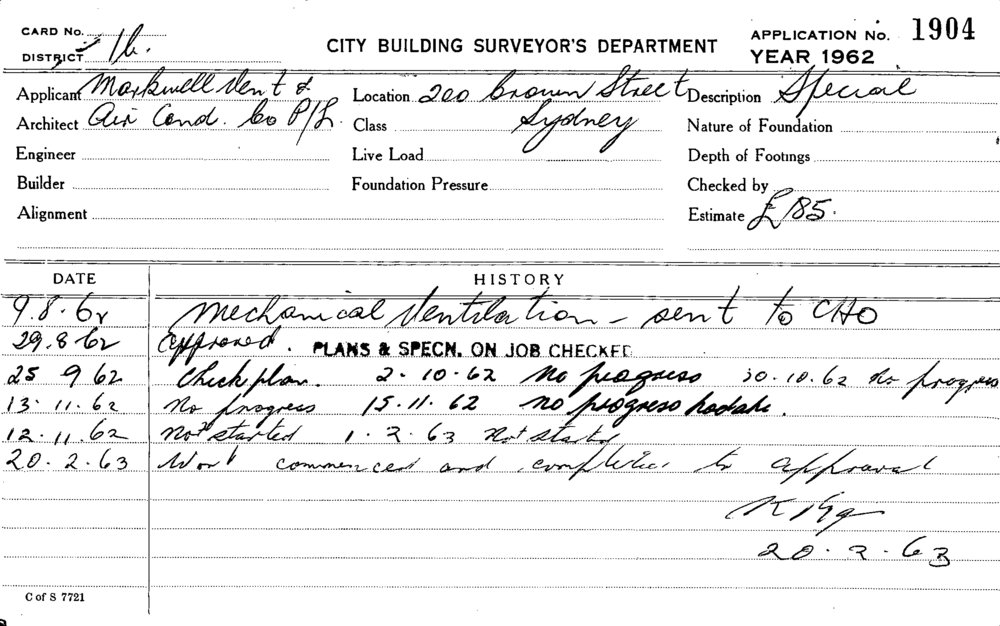 CARD No.
DISTRICT 16.
CITY BUILDING SURVEYOR'S DEPARTMENT
APPLICATION No. 1904
YEAR 1962
Applicant Markwell Vent &
Location 200 Crown Street
Description Special
Architect Air Cond. Co P/L.
Class Sydney
Nature of Foundation
Engineer
Live Load
Depth of Footings
Builder
Foundation Pressure
Checked by
Alignment
Estimate £185.
DATE HISTORY
9.8.62 Mechanical Ventilation – sent to CHO
29.8.62 Approved. PLANS & SPECN. ON JOB CHECKED
25 9 62 Check plan. 2.10.62 No progress 30.10.62 No progress
13.11.62 No progress 15.11.62 no progress
12.11.62 Not started 1.2.63 Not started
20.2.63 Work commenced and completed to approval
20.2.63
C of S 7721